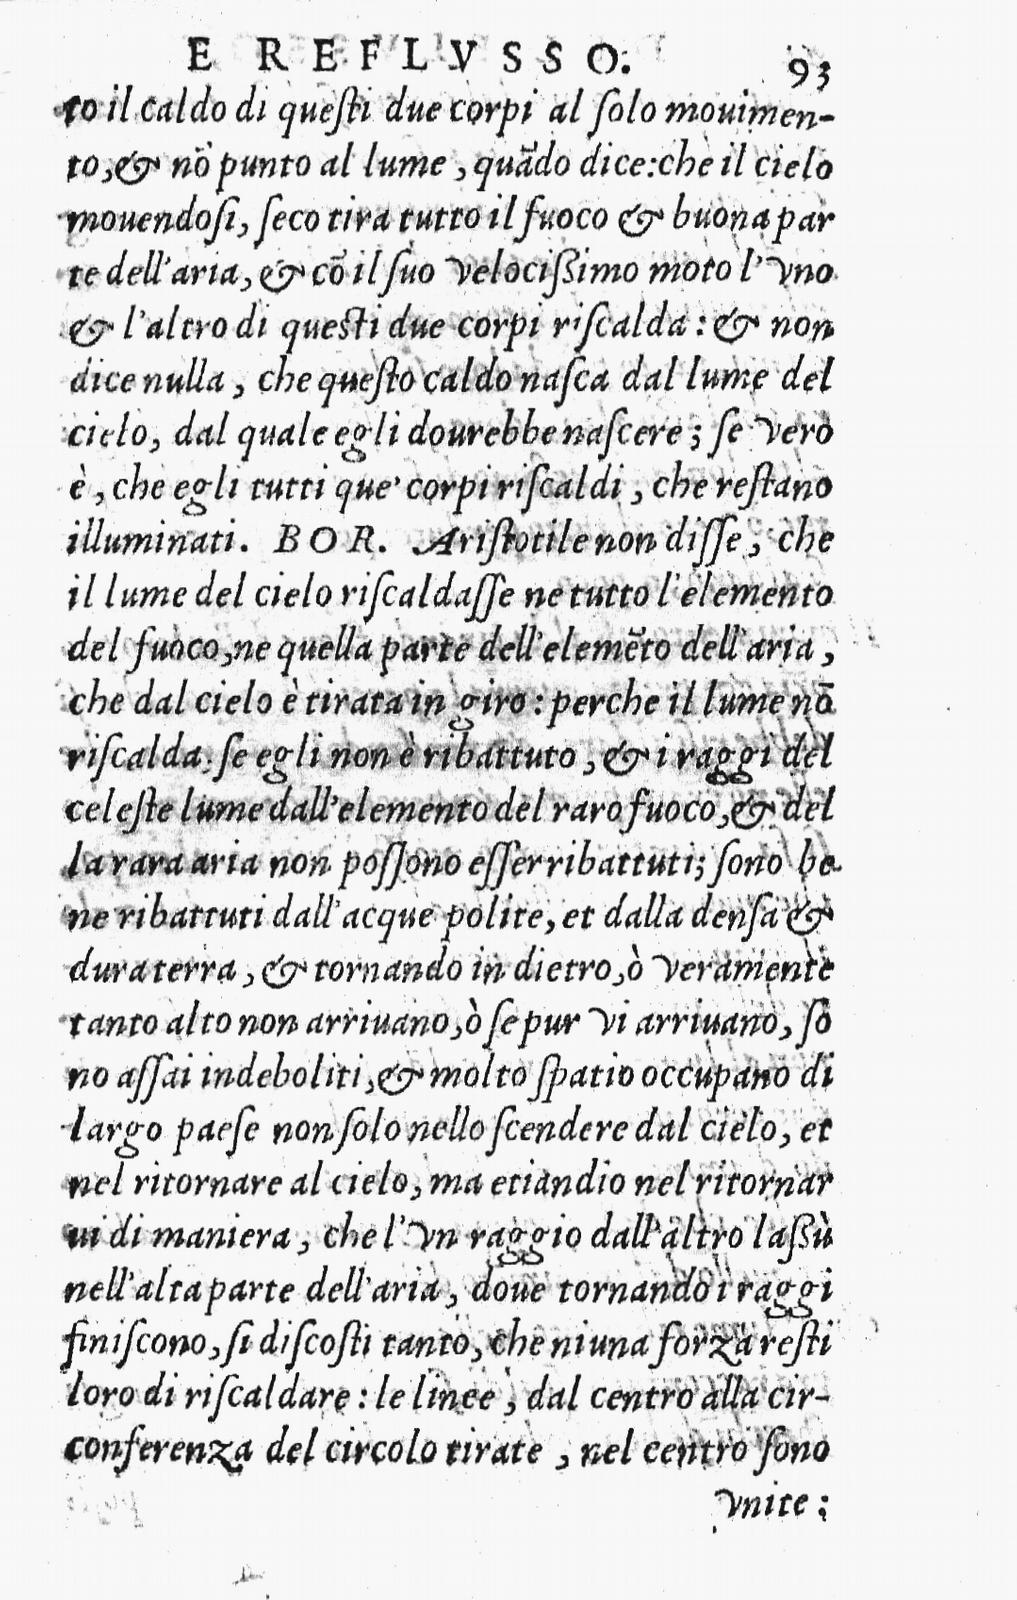 E REFLVSSO. 93
to il caldo di queſti due corpi al ſolo mouimen-
to,& nō punto al lume , quādo dice:che il cielo
mouendoſi, ſeco tira tutto il fuoco & buona par
te dell'aria, & cō il ſuo velocißimo moto l' vno
& l'altro di queſti due corpi riſcalda : & non
dice nulla , che queſto caldo naſca dal lume del
cielo, dal quale egli dourebbe naſcere ; ſe vero
è , che egli tutti que' corpi riſcaldi , che reſtano
illuminati. BOR. Ariſtotile non diſſe , che
il lume del cielo riſcaldaſſe ne tutto l'elemento
del fuoco,ne quella parte dell'elemēto dell'aria ,
che dal cielo è tirata in giro : perche il lume nō
riſcalda: ſe egli non è ribattuto , & i raggi del
celeſte lume dall'elemento del raro fuoco,& del
la rara aria non poſſono eſſer ribattuti; ſono be
ne ribattuti dall'acque polite, et dalla denſa &
dura terra , & tornando in dietro,ò veramente
tanto alto non arriuano,ò ſe pur vi arriuano, ſo
no aſſai indeboliti,& molto ſpatio occupano di
largo paeſe non ſolo nello ſcendere dal cielo, et
nel ritornare al cielo, ma etiandio nel ritornar
ui di maniera , che l' vn raggio dall'altro laßù
nell'alta parte dell'aria , doue tornando i raggi
finiſcono, ſi diſcoſti tanto, che niuna forza reſti
loro di riſcaldare : le linee , dal centro alla cir-
conferenza del circolo tirate , nel centro ſono
vnite :